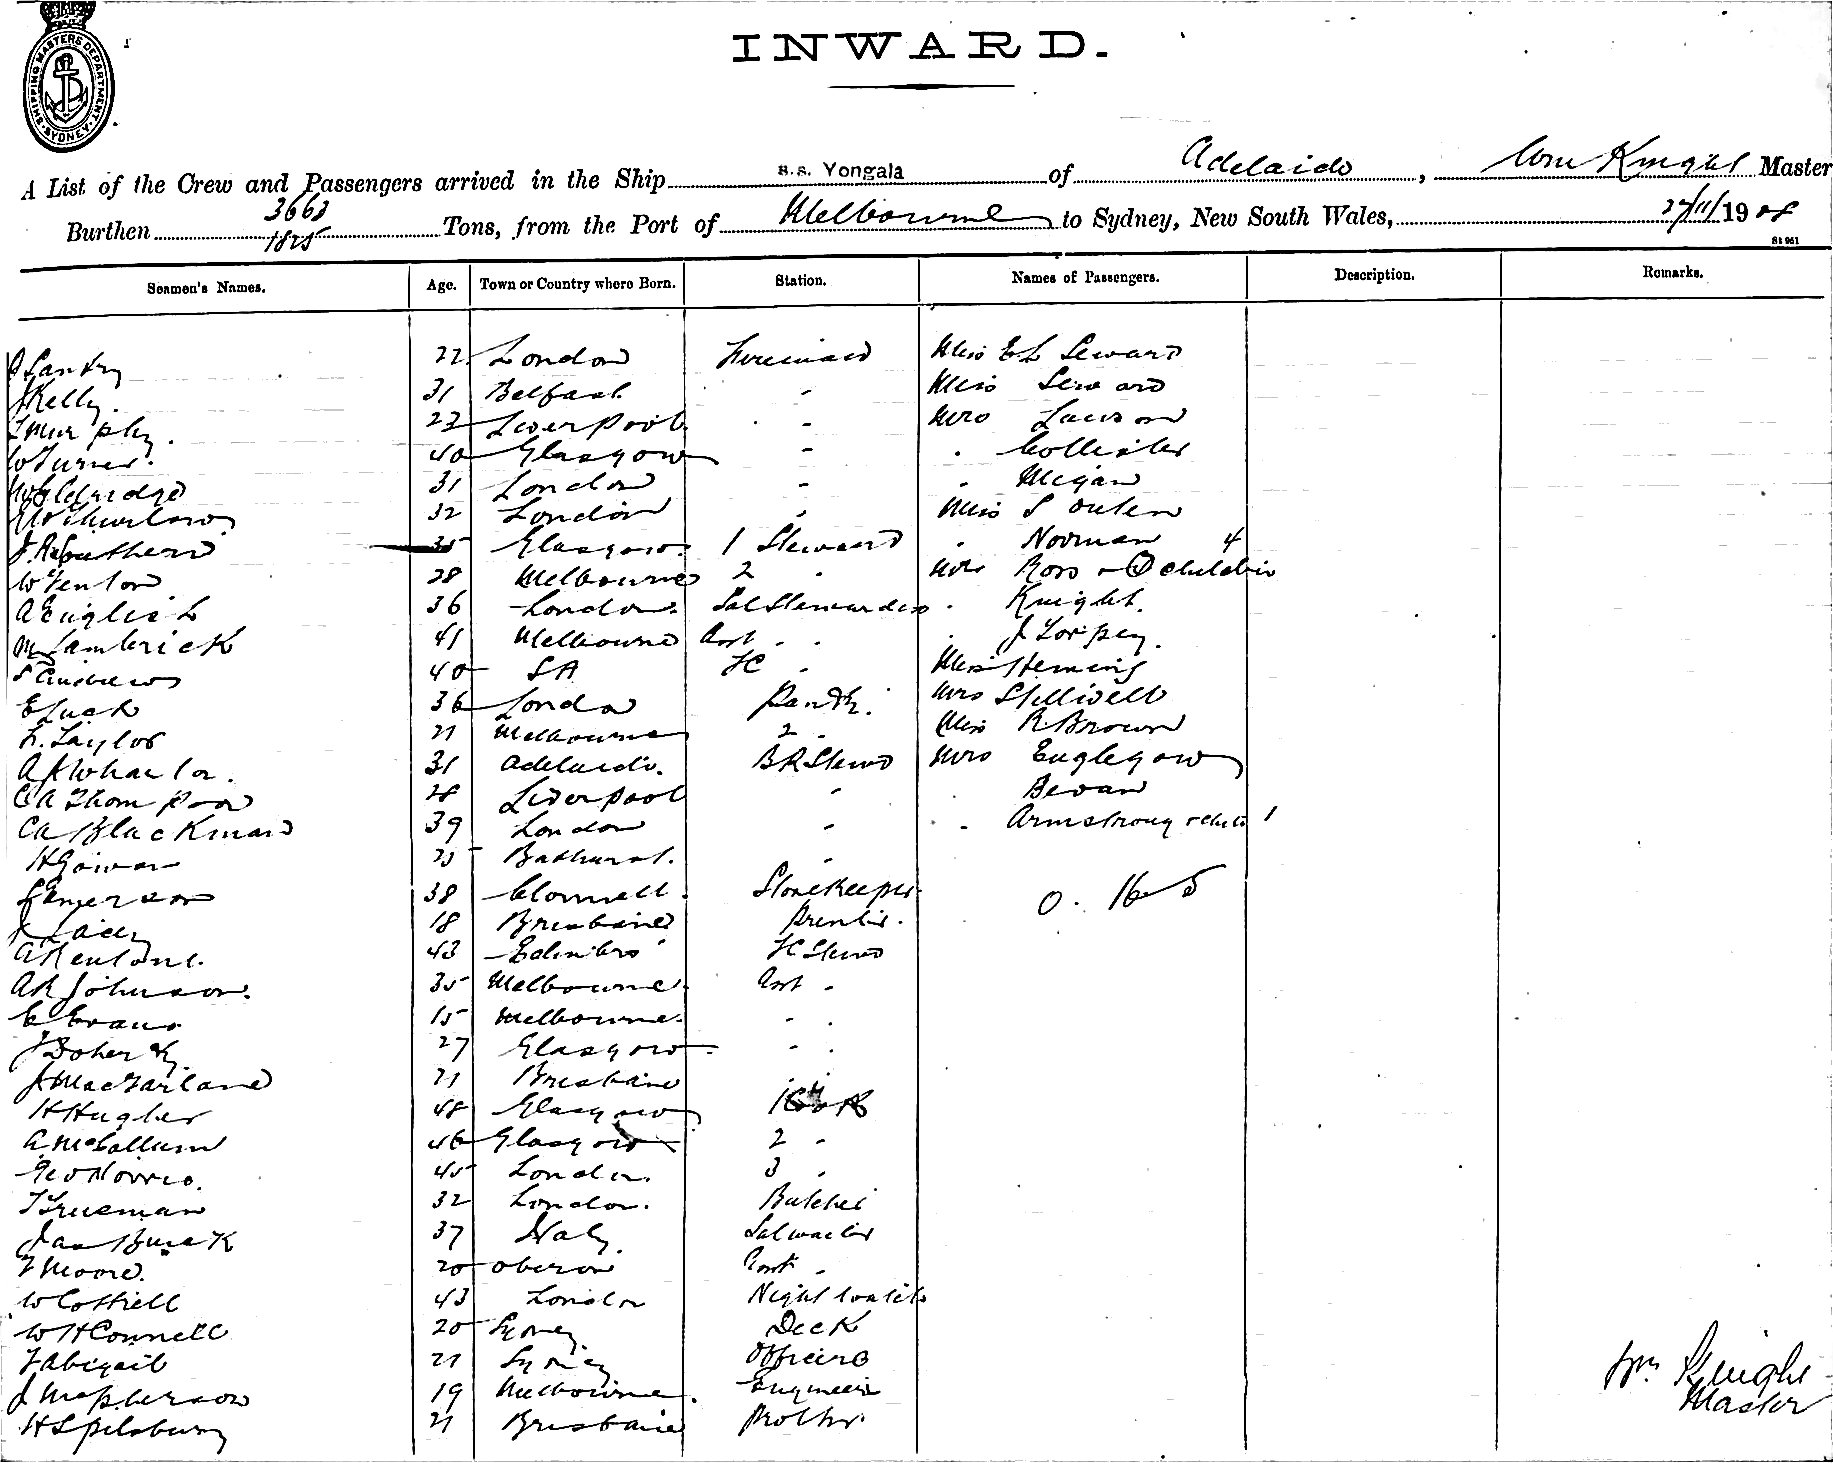 SHIPPING MASTERS DEPARTMENT
SYDNEY
INWARD.
A List of the Crew and Passengers arrived in the Ship s.s. Yongala of Adelaide, Wm Knight Master
Burthen 3663 1825 Tons, from the Port of Melbourne to Sydney, New South Wales, 27/11/1908
81961
Seamen's Names. Age. Town or Country where Born. Station. Names of Passengers. Description. Remarks.
22 London Fireman Miss EL Seward
J Kelly. 31 Belfast - Miss Seward
T Murphy. 23 Liverpool - Mrs Lawson
W Turner. 40 Glasgow - . Collister
31 London - . Megan
E W Thurlow 32 London Miss Souten
J. R. Southern 35 Glasgow. 1 Steward . Norman 4
W Fenton 28 Melbourne 2 . Mrs Ross & 2 children
A English 36 London. Sal Stewardess . Knight.
M Lambrick 41 Melbourne Asst . . . J Torpey.
S Andrews 40 SA FC . Miss Heming
E Luck 36 London Pantr. Mrs Stillwell
L. Taylor 21 Melbourne 2 . Miss R Brown
A J Wharton. 31 Adelaide. BR Stewd Mrs Englegow
C A Thompson 28 Liverpool " Bevan
C A Blackman 39 London " . Armstrong & child 1
H Gowan 23 Bathurst. "
38 Clonmell. Storekeeper 0. 16 5
18 Brisbane Prentis.
A Rentone. 43 Edinbro' FC Stewd
A R Johnson. 35 Melbourne. Asst .
C Evans 15 Melbourne. - .
J Doherty. 27 Glasgow - .
J MacFarlane 21 Brisbane
H Hughes 48 Glasgow 1 Cook
A. McCallum 46 Glasgow 2 .
Geo Norris. 45 London. 3 .
T Trueman 32 London. Butcher
Jas Burek 37 Italy. Sal waiter
F Moore. 20 Oberon Asst .
W Cottrell 43 London Night watch
W H Connell 20 Sydney Deck
F Abigail 21 Sydney Officers
J McPherson 19 Melbourne. Engineers
H Spilsbury 21 Brisbane
Wm Knight
Master